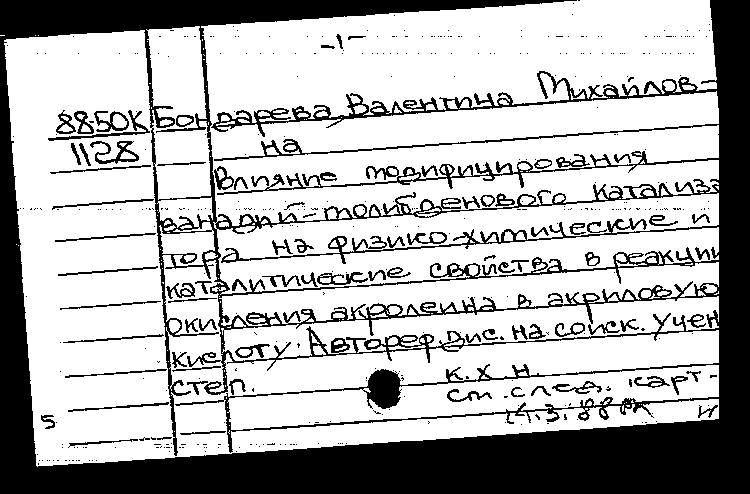 -1-
88-50К Бондарева, Валентина Михайлов-
1128 на
Влияние модифицирования
ванадий-молибденового катализа
тора на физико-химические и
каталитические свойства в реакции
окисления акролеина в акриловую
кислоту: Автореф. дис. на соиск. учен
степ.
к.х.н.
см. след. карт-
14.3.88
5